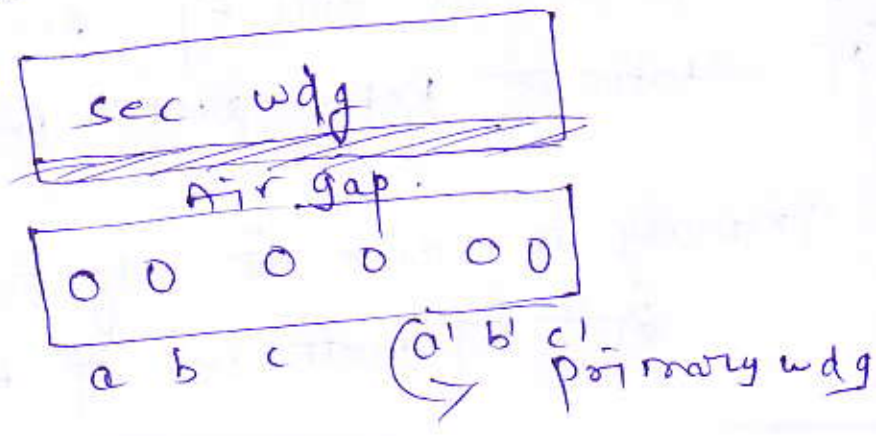 sec. wdg.
Air gap.
a b c a' b' c'
primary wdg